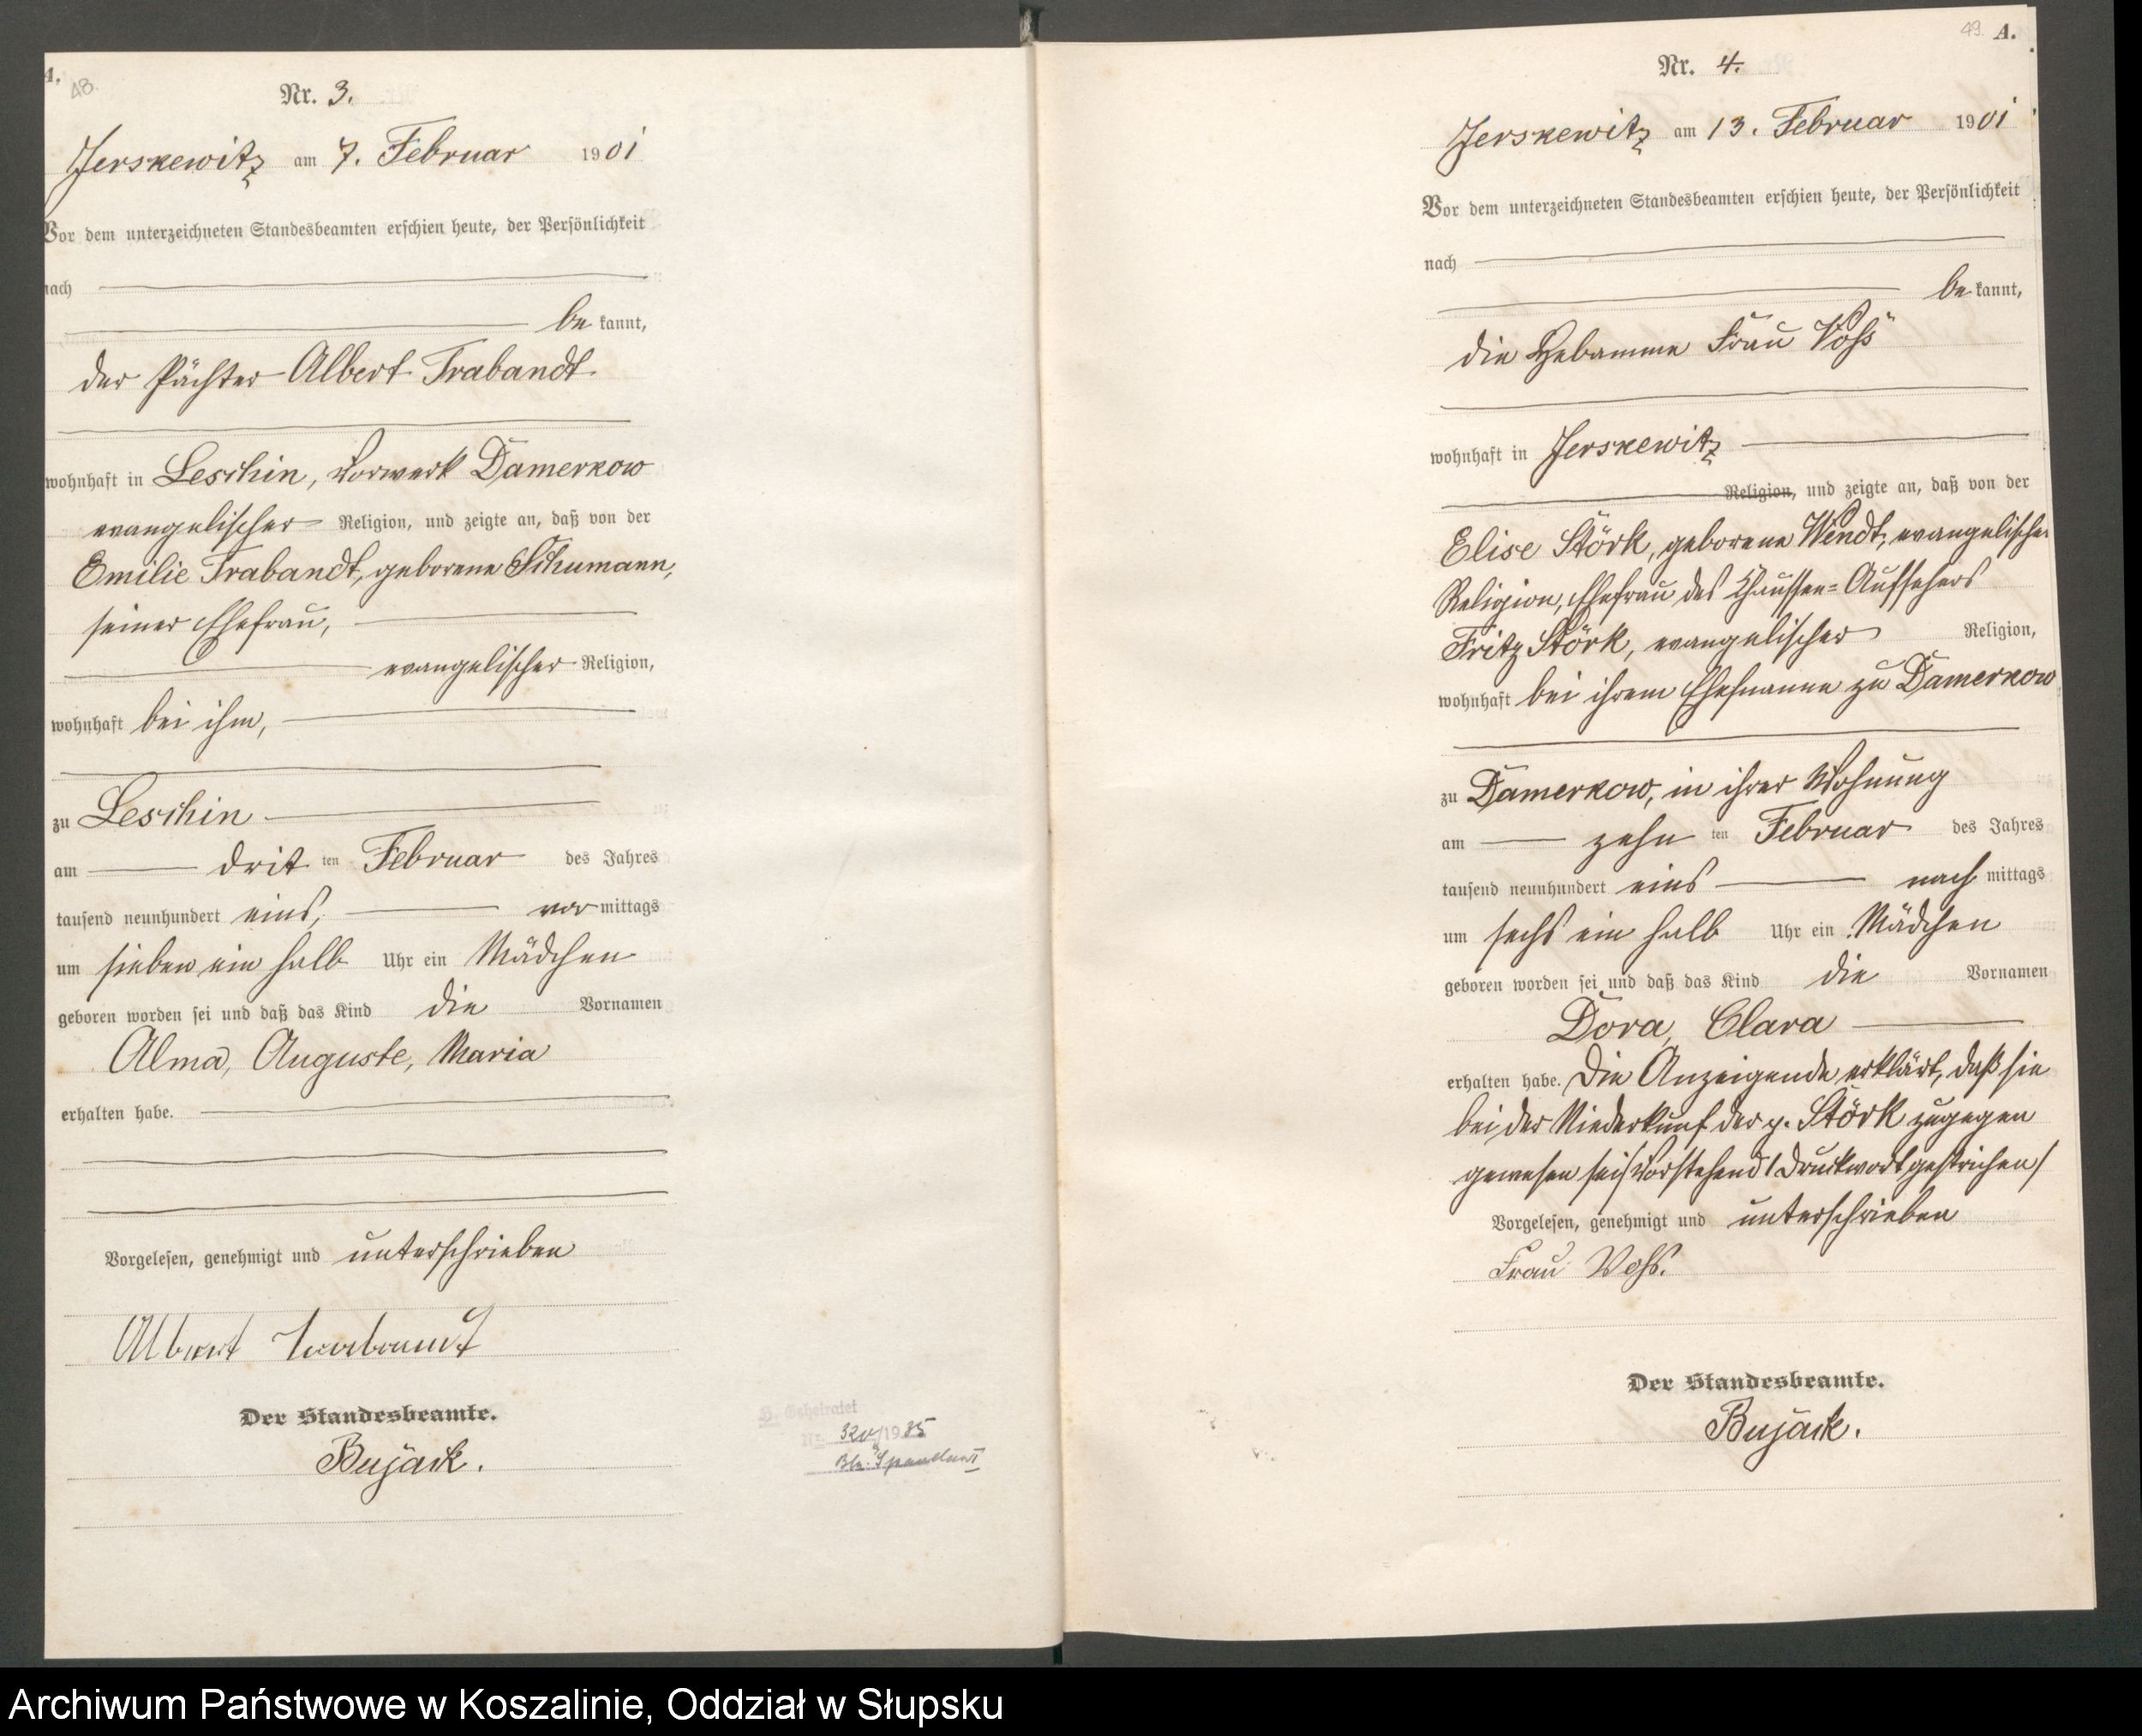 A.
48.
Nr. 3.
Jerskewitz am 7. Februar 1901
Vor dem unterzeichneten Standesbeamten erschien heute, der Persönlichkeit
nach
be kannt,
der Pächter Albert Trabandt
wohnhaft in Leschin, Vorwerk Damerkow
evangelischer Religion, und zeigte an, daß von der
Emilie Trabandt, geborene Schumann,
seiner Ehefrau,
evangelischer Religion,
wohnhaft bei ihm,
zu Leschin
am drit ten Februar des Jahres
tausend neunhundert eins, vor mittags
um sieben ein halb Uhr ein Mädchen
geboren worden sei und daß das Kind die Vornamen
Alma, Auguste, Maria
erhalten habe.
Vorgelesen, genehmigt und unterschrieben
Albert Trabandt
Der Standesbeamte.
Bujack.
Geheiratet
Nr. 320/1935
Bln. Spandau I
49. A.
Nr. 4.
Jerskewitz am 13. Februar 1901
Vor dem unterzeichneten Standesbeamten erschien heute, der Persönlichkeit
nach
be kannt,
die Hebamme Frau Voss
wohnhaft in Jerskewitz
Religion, und zeigte an, daß von der
Elise Störk, geborene Wendt, evangelischer
Religion, Ehefrau des Chaussee-Aufsehers
Fritz Störk, evangelischer Religion,
wohnhaft bei ihrem Ehemanne zu Damerkow
zu Damerkow, in ihrer Wohnung
am zehn ten Februar des Jahres
tausend neunhundert eins nach mittags
um sechs ein halb Uhr ein Mädchen
geboren worden sei und daß das Kind die Vornamen
Dora, Clara
erhalten habe. Die Anzeigende erklärt, daß sie
bei der Niederkunf der p. Störk zugegen
gewesen sei / Vorstehend 1 Druckwort gestrichen /
Vorgelesen, genehmigt und unterschrieben
Frau Voss.
Der Standesbeamte.
Bujack.
Archiwum Państwowe w Koszalinie, Oddział w Słupsku